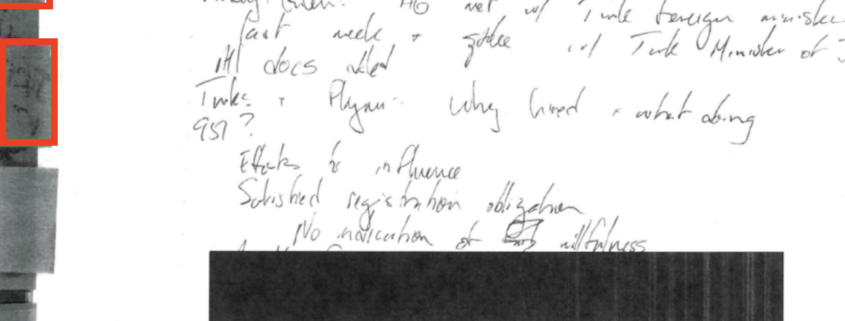 AG met w/ Turk foreign minister
last week + spoke w/ Turk Minister of J
All docs
Turks + Flynn: Why hired + what doing
951?
Efforts to influence
Satisfied registration obligation
No indication of willfulness